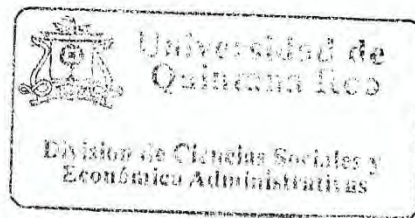 Universidad de
Quintana Roo
División de Ciencias Sociales y
Económico Administrativas